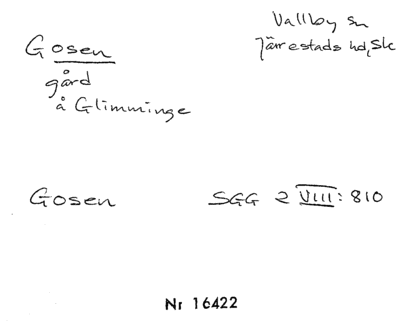 Gosen
gård
å Glimminge
Vallby sn
Järrestads hd, Sk
Gosen
SGG 2 VIII: 810
Nr 16422